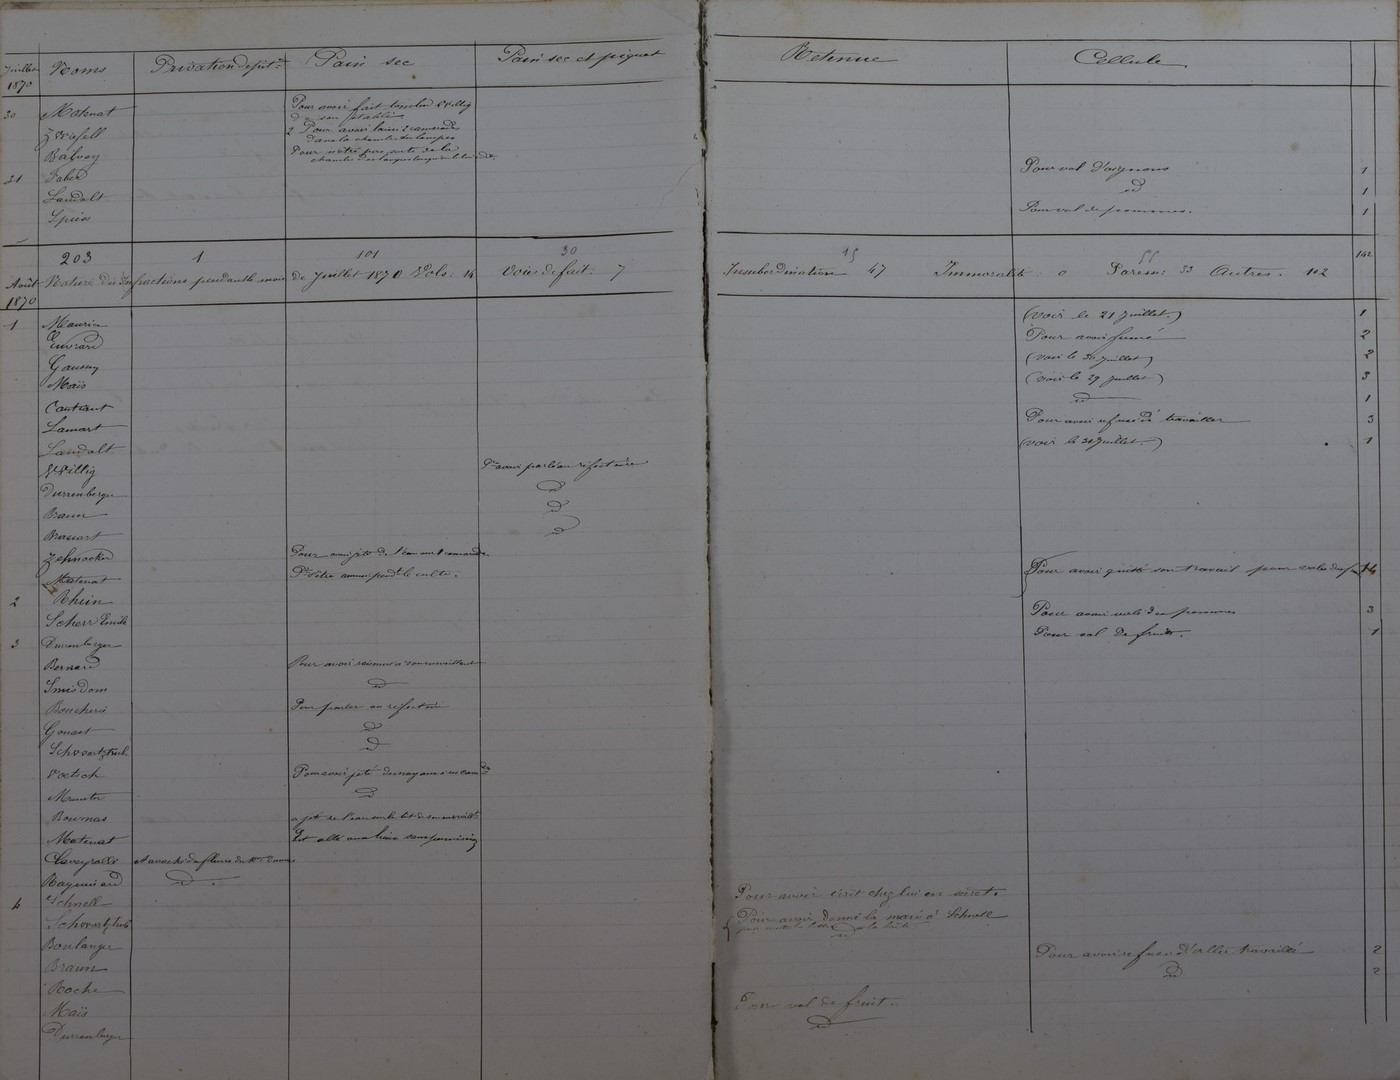 Juillet 1870 Noms Privation de fût. Pain sec Pain sec et piquet Retenue Cellule
30 Matenat Pour avoir fait tomber Willig
de son établi
Zwifell 2 Pour avoir 2 camarades
dans la chambre des lampes
Balvay Pour n'être pas sorti de la
chambre des lampes
31 Faber Pour vol d'oignons 1
Landolt id 1
Spies Pour vol de pommes. 1
203 1 101 30 15 55 142
Août 1870 Nature des Infractions pendant le mois de Juillet 1870 Vols: 14 Voies de fait. 7 Insubordination 47 Immoralité: 0 Paresse 33 Autres. 102
1 Maurice (voir le 21 juillet.) 1
Euvrard Pour avoir fumé 2
Gaussy (voir le 30 juillet) 2
Maïs (voir le 29 juillet) 3
Coutraut id 1
Lamart Pour avoir refusé de travailler 3
Landolt (voir le 30 juillet.) 1
Willig Pr avoir parlé au réfectoire
Durrenberger d
Braun d
Brassart d
Zehnacker Pour avoir jeté de l'eau sur 1 camarade
Matenat Pr s'être amusé pendt le culte. Pour avoir quitté son travail pour voler des 14
2 Rhein
Scherr Emile Pour avoir volé des pommes 3
3 Durrenberger Pour vol de fruits. 1
Bernard Pour avoir
Smisdom d
Boucherie Pour parler au réfectoire
Gouart d
Schwartztrub d
Voetsch Pour avoir jeté des noyaux à ses camdes
Meunter d
Boumas a jeté de l'eau sur le lit de son surveillt
Matenat Est allé aux lieux sans permission
Claveyrolle A arraché des fleurs de Mr
Raymond d.
4 Schnell Pour avoir écrit chez lui en secret.
Schwartztrub Pour avoir donné la main à Schnell
pour mettre la lettre à la boîte
Boulanger id Pour avoir refusé d'aller travailler 2
Braun d 2
Roche
Maïs Pour vol de fruit.
Durrenberger d